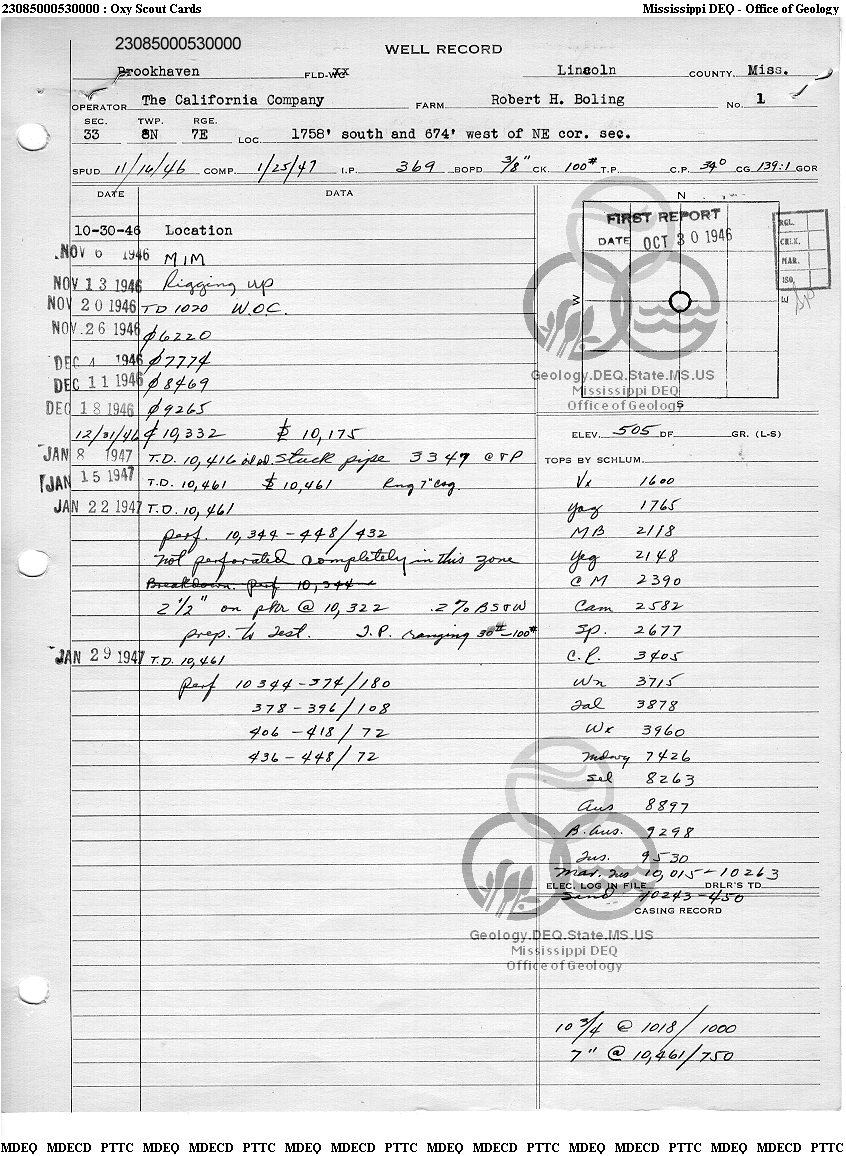 23085000530000 : Oxy Scout Cards Mississippi DEQ - Office of Geology
23085000530000
WELL RECORD
Brookhaven FLD-WC XX Lincoln COUNTY, Miss.
OPERATOR The California Company FARM Robert H. Boling No. 1
SEC. TWP. RGE.
33 8N 7E LOC. 1758' south and 674' west of NE cor. sec.
SPUD 11/16/46 COMP. 1/25/47 I.P. 369 BOPD 3/8" CK. 100# T.P. C.P. 34° CG 139:1 GOR
DATE DATA
N
FIRST REPORT
DATE OCT 30 1946
RGL.
CHEK.
MAR.
ISO.
W E
S
10-30-46 Location
NOV 6 1946 MIM
NOV 13 1946 Rigging up
NOV 20 1946 TD 1020 W.O.C.
NOV 26 1946 ₵6220
DEC 4 1946 ₵7774
DEC 11 1946 ₵8469
DEC 18 1946 ₵9265
12/31/46 ₵ 10,332 $ 10,175
JAN 8 1947 T.D. 10,416 Stuck pipe 3347 @ TP
JAN 15 1947 T.D. 10,461 $ 10,461 Rng 7" csg.
JAN 22 1947 T.D. 10,461
perf. 10,344-448/432
not perforated completely in this zone
Breakdown. perf 10,344-
2 1/2" on pkr @ 10,322 .2% BS&W
prep. to Test. T.P. ranging 30#-100#
JAN 29 1947 T.D. 10,461
Perf 10344-374/180
378-396/108
406-418/72
436-448/72
Geology.DEQ.State.MS.US
Mississippi DEQ
Office of Geology
ELEV. 505 DF GR. (L-S)
TOPS BY SCHLUM.
Vx 1600
Yaz 1765
MB 2118
Yeg 2148
CM 2390
Cam 2582
Sp. 2677
C.P. 3405
Wn 3715
Tal 3878
Wx 3960
Mdwy 7426
Sel 8263
Aus 8897
B. Aus. 9298
Tus. 9530
Mar. Tus 10,015-10263
ELEC. LOG IN FILE DRLR'S TD
Sand 10243-450
CASING RECORD
Geology.DEQ.State.MS.US
Mississippi DEQ
Office of Geology
10 3/4 @ 1018/1000
7" @ 10,461/750
MDEQ MDECD PTTC MDEQ MDECD PTTC MDEQ MDECD PTTC MDEQ MDECD PTTC MDEQ MDECD PTTC MDEQ MDECD PTTC